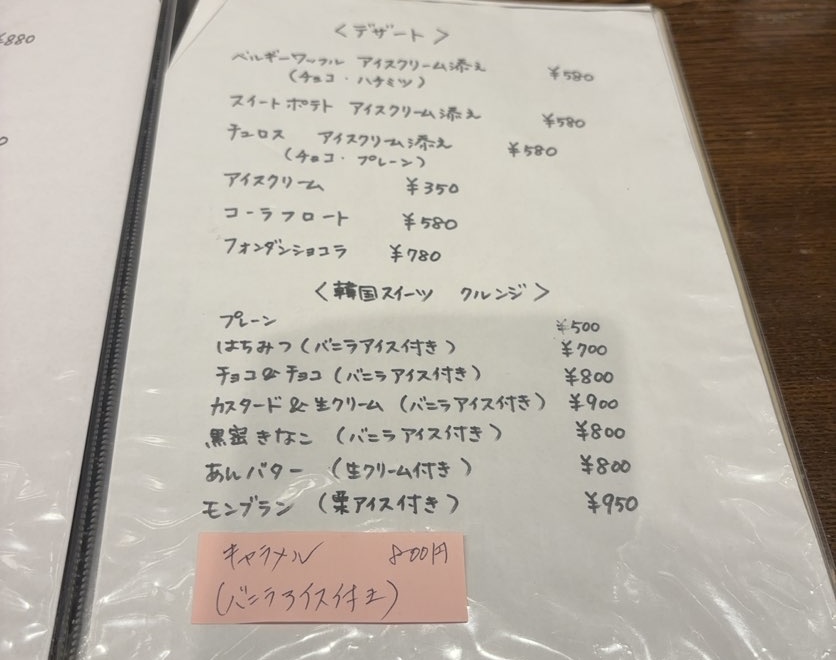 ¥880
<デザート>
ベルギーワッフル アイスクリーム添え ¥580
(チョコ・ハチミツ)
スイートポテト アイスクリーム添え ¥580
チュロス アイスクリーム添え ¥580
(チョコ・プレーン)
アイスクリーム ¥350
コーラフロート ¥580
フォンダンショコラ ¥780
<韓国スイーツ クルンジ>
プレーン ¥500
はちみつ(バニラアイス付き) ¥700
チョコ&チョコ(バニラアイス付き) ¥800
カスタード&生クリーム(バニラアイス付き) ¥900
黒蜜きなこ(バニラアイス付き) ¥800
あんバター(生クリーム付き) ¥800
モンブラン(栗アイス付き) ¥950
キャラメル 800円
(バニラアイス付き)